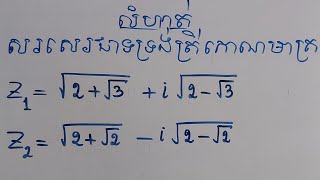 លំហាត់
សរសេរជាទម្រង់ត្រីកោណមាត្រ
Z₁ = √(2 + √3) + i √(2 − √3)
Z₂ = √(2 + √2) − i √(2 − √2)